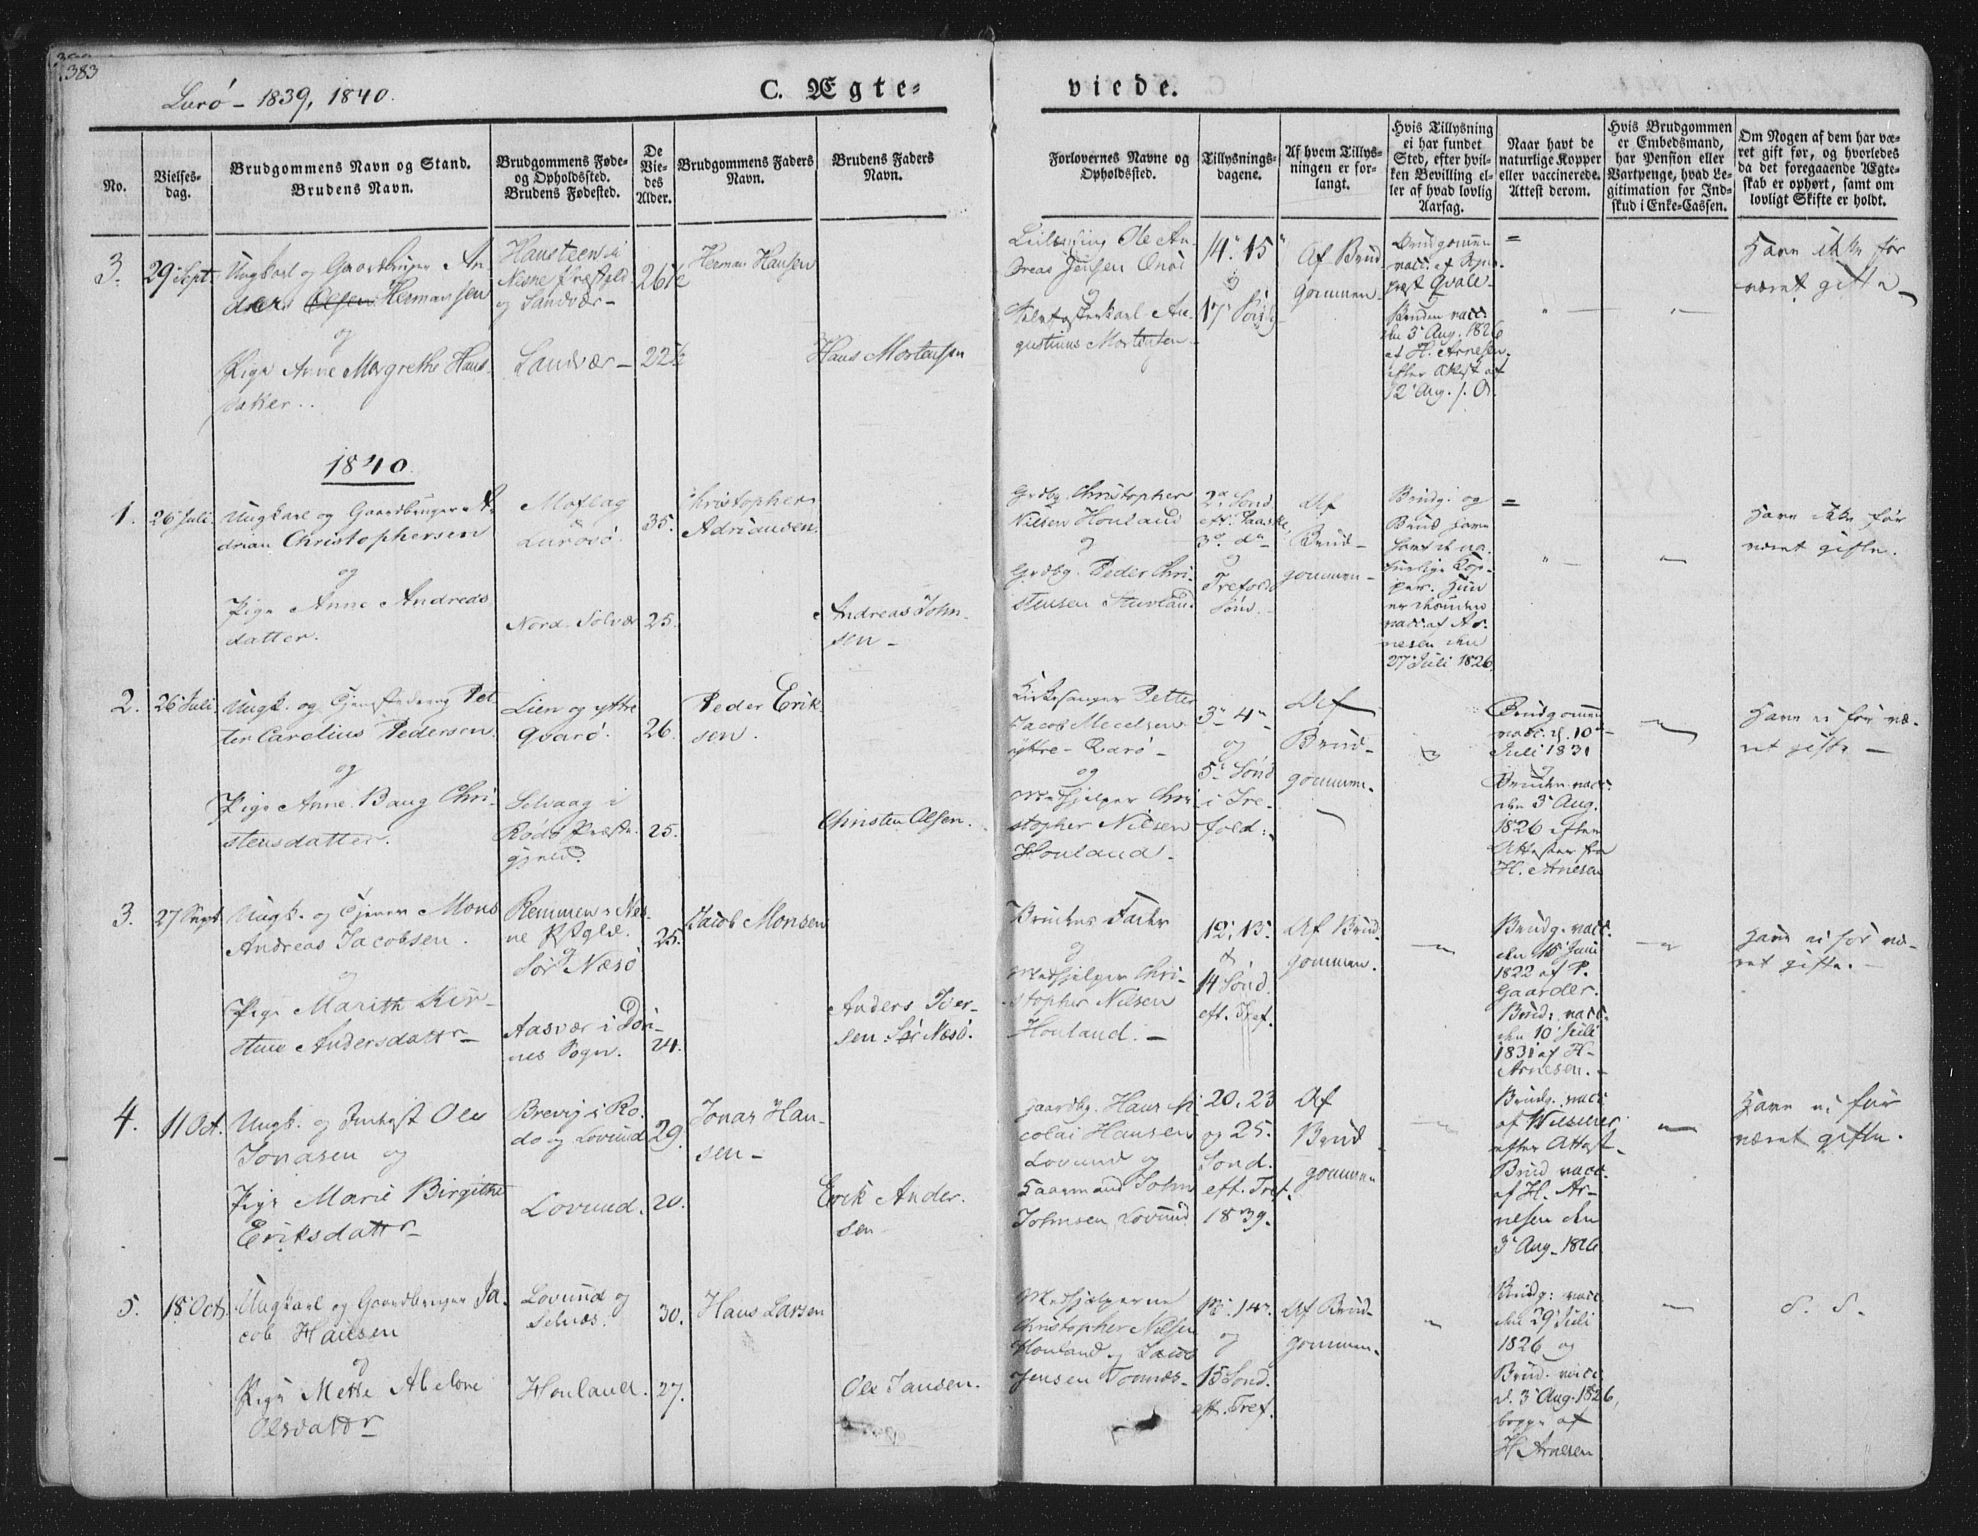 383
Lurö - 1839, 1840.
C. Ægte=
viede.
No.
Vielses-
dag.
Brudgommens Navn og Stand.
Brudens Navn.
Brudgommens Føde-
og Opholdsted.
Brudens Fødested.
De
Vie-
des
Alder.
Brudgommens Faders
Navn.
Brudens Faders
Navn.
Forlovernes Navne og
Opholdssted.
Tillysnings-
dagene.
Af hvem Tillys-
ningen er for-
langt.
Hvis Tillysning
ei har fundet
Sted, efter hvil-
ken Bevilling el-
ler af hvad lovlig
Aarsag.
Naar havt de
naturlige Kopper
eller vaccinerede.
Attest derom.
Hvis Brudgommen
er Embedsmand,
har Pension eller
Vartpenge, hvad Le-
gitimation for Ind-
skud i Enke-Cassen.
Om Nogen af dem har væ-
ret gift før, og hvorledes
da det foregaaende Ægte-
skab er ophørt, samt om
lovligt Skifte er holdt.
3. 29 Sept. Ungkarl og Gaardbruger An-
ders Olsen Hermansen
og
Pige Anne Margrethe Hans-
datter.
Hansteen i
Nesne Præstgjeld
og Sandvær -
Sandvær -
26½
22½
Herman Hansen
Hans Mortensen
Ole An-
dreas Jensen
og
Au-
gustinus Mortensen -
14de 15
og
17
Af Brud
gommen -
Brudgommen
vacc. af
Qvale -
Bruden vacc.
den 3 Aug. 1826
af H. Arnesen
efter Attest af
12 Aug.
=
Have ikke før
været gifte -
1840.
1. 26 Juli. Ungkarl og Gaardbruger A-
drian Christophersen
og
Pige Anne Andreas
datter.
Moflag
Lurösö.
Nord. Solvær
35.
25.
Christopher
Adriansen.
Andreas John
sen -
Grdbg. Christopher
Nilsen Houland
og
Grdbg. Peder Chri-
stensen
2d Sond.
eft. Paaske,
3d do
og
Trefold
Sönd.
Af
Brud-
gommen -
Brudg. og
Brud have
havt de na-
turlige Kop-
per. Hun
er desuden
vacc. af Ar-
nesen den
27 Juli 1826
=
Have ikke før
været gifte.
2. 26 Juli. Ungk. og Pet
ter Carolius Pedersen.
og
Pige Anne Baug Chri-
stensdatter.
Lien og yttre
Qvarö.
Selvaag i
Rödö Præste-
gjeld.
26.
25.
Peder Erik
sen.
Christen Olsen.
Kirkesanger Petter
Jacob Mechelsen
yttre - Qvarö -
og
Medhjelper Chri
stopher Nilsen
Houland.
3de 4de
og
5te Sönd
i Tre-
fold:
Af
Brud-
gommen.
Brudgommen
vacc. d. 10
Juli 1831
og
Bruden vacc.
den 3 Aug.
1826 efter
Attester fra
H. Arnesen
Have ei før væ-
ret gifte -
3. 27 Sept. Ungk. og Tjener Mons
Andreas Jacobsen.
og
Pige Marith Kir-
stine Andersdattr -
Remmen i Nes-
ne Pstgld.
og
Sör Næsö
Aasvær i Dön-
nes Sogn.
25.
24.
Jacob Monsen
Anders Iver-
sen Sör Næsö.
Brudens Fader
og
Medhjelper Chri-
stopher Nilsen
Houland. -
12, 13.
&
14 Sönd.
eft. Tref.
Af Brud-
gommen.
Brudg. vacc.
den 15 Juni
1822 af P.
Gaarder.
Brud. vacc.
den 10 Juli
1831 af H.
Arnesen. -
Have ei før væ-
ret gifte. -
4. 11 Oct. Ungk. og Inderst Ole
Jonasen og
Pige Marie Birgithe
Eriksdattr -
Brevig i Rö-
dö og Lovund
Lovund.
29.
20.
Jonas Han-
sen -
Erik Ander-
sen
Gaardbg. Hans Ni-
colai Hansen
Lovund og
Gaarmand John
Johnsen Lovund
20, 23
og 25.
Sond.
eft. Tref.
1839.
Af
Brud
gommen
Brudg. vacc.
af
efter Attest -
Brud vacc.
af H. Ar-
nesen den
3 Aug. 1826
Have ei før
været gifte.
5. 18 Octr. Ungkarl og Gaardbruger Ja-
cob Hansen
og
Pige Mette Abelone
Olsdattr
Lovund og
Selnæs.
Houland.
30.
27.
Hans Larsen
Ole Jansen.
Medhjelperne
Christopher Nilsen
Houland og Jacob
Jensen Tonnes -
14de
og
15 Sond.
eft. Tref.
Af Brud-
gommen.
Brudg: vacc.
den 29 Juli
1826 og
Brud. vacc.
d. 3 Aug. 1826,
begge af
H Arnesen